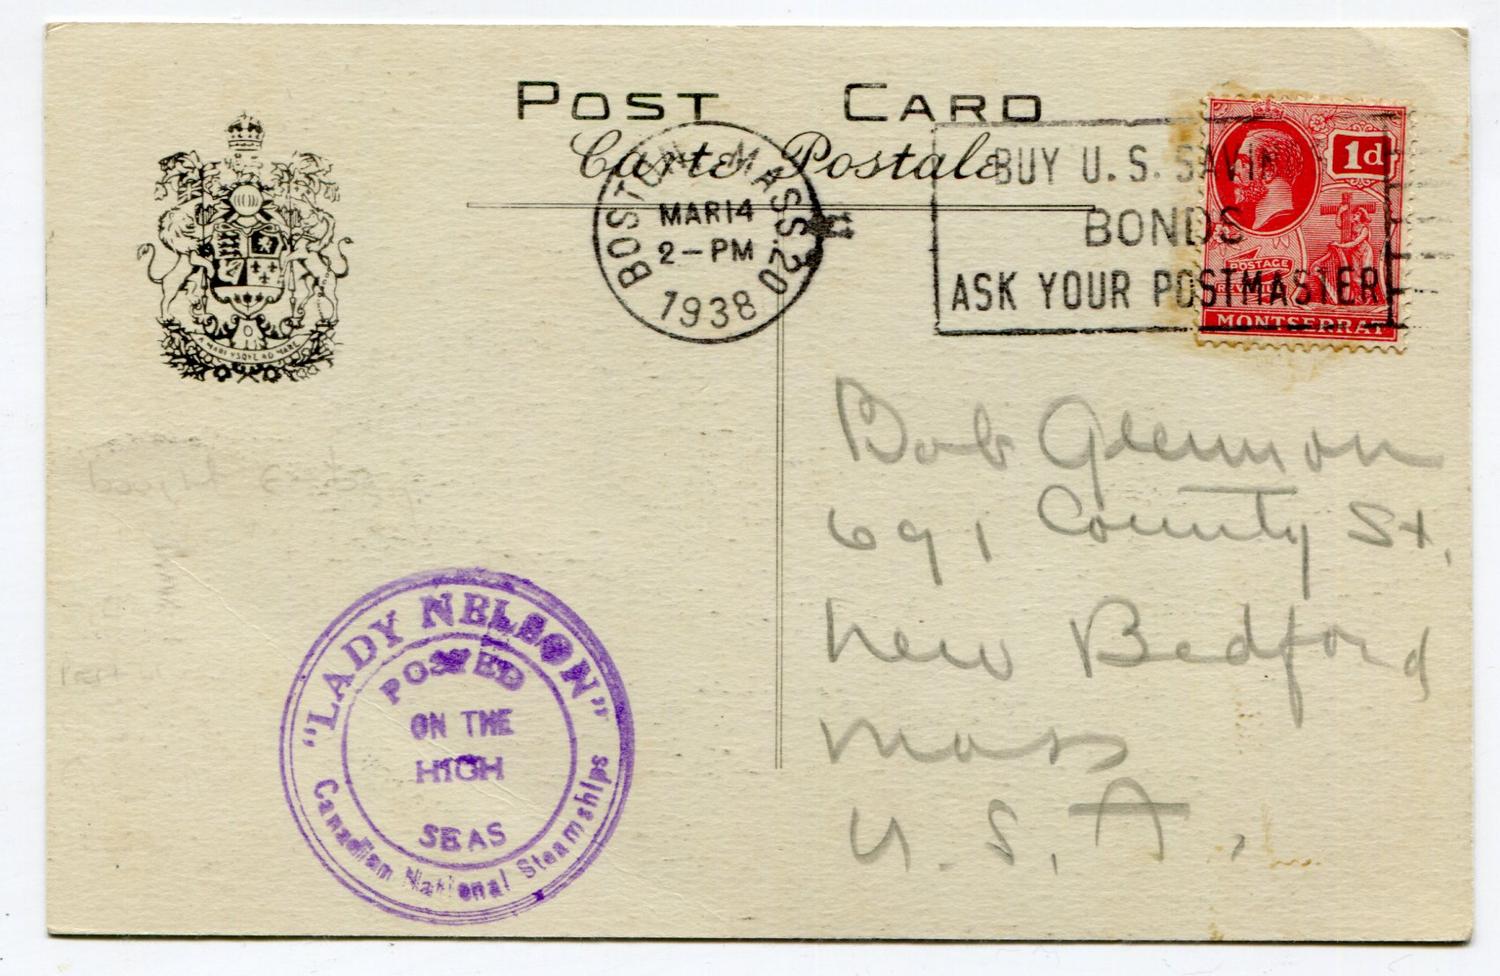 POST CARD
Carte Postale
BOSTON MASS. 20
MAR 14
2-PM
1938
11
BUY U. S. SAVIN
BONDS
ASK YOUR POSTMASTER
1d
POSTAGE
REVENUE
MONTSERRAT
A MARI VSQVE AD MARE
Bob Glennon
691 County St.
New Bedford
Mass
U.S.A.
bought
"LADY NELSON"
POSTED
ON THE
HIGH
SEAS
Canadian National Steamships